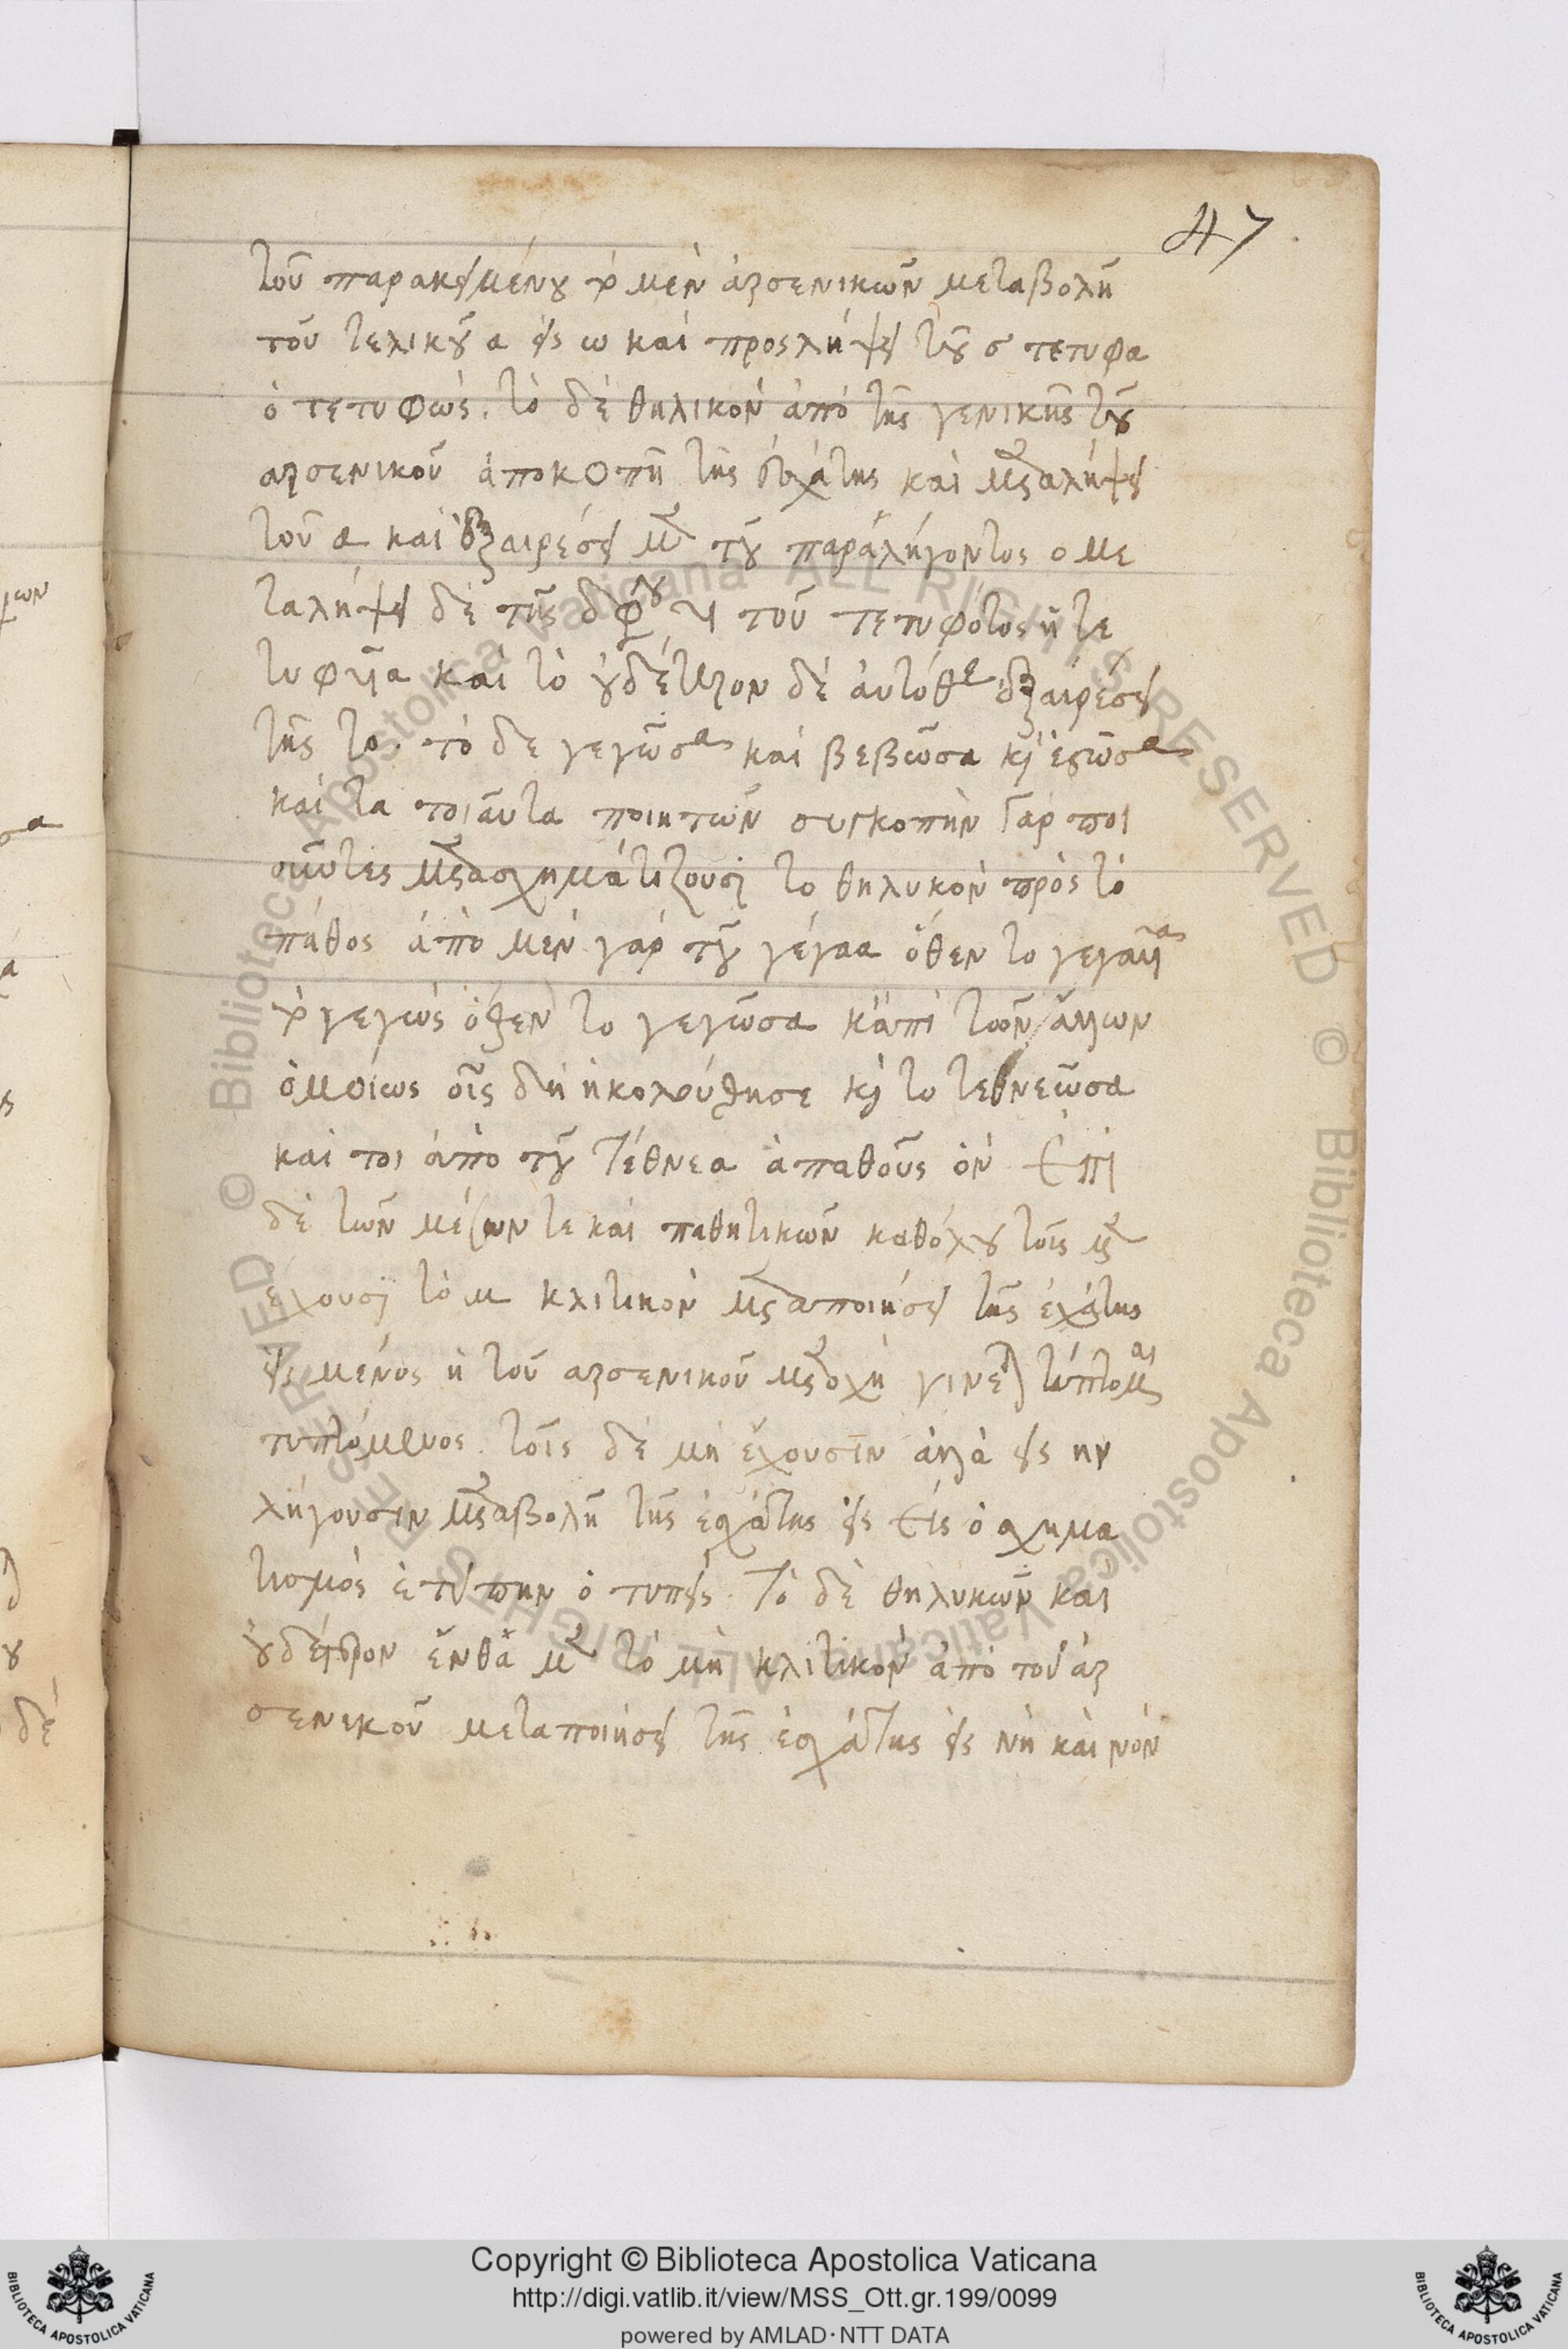 47
τοῦ παρακειμένου τὸ μὲν ἀρσενικῶν μεταβολῇ
τοῦ τελικοῦ α εἰς ω καὶ προσλήψει τοῦ σ τετυφα
ὁ τετυφώς. τὸ δὲ θηλικὸν ἀπὸ τῆς γενικῆς τοῦ
αρσενικοῦ ἀποκοπῇ τῆς ἐσχάτης καὶ μεταλήψει
τοῦ α καὶ ἐξαιρέσει μὲν τοῦ παραλήγοντος ο με
ταλήψει δὲ τῆς υι τοῦ τετυφότος ἡ τε
τυφυῖα καὶ τὸ οὐδέτερον δὲ αὐτόθεν ἐξαιρέσει
τῆς το. τὸ δε γεγῶσα καὶ βεβῶσα καὶ ἑστῶσα
καὶ τα τοιαῦτα ποιητῶν συγκοπὴν γαρ ποι
οῦντες μετασχηματίζουσι το θηλυκὸν πρὸς τὸ
πάθος ἀπὸ μὲν γὰρ τοῦ γέγαα ὅθεν το γεγαυῖα
τὸ γεγὼς ὅθεν το γεγῶσα κἀπὶ τῶν ἄλλων
ὁμοίως οἷς δὴ ἠκολούθησε καὶ το τεθνεῶσα
καί τοι ἀπὸ τοῦ τέθνεα ἀπαθοῦς ὂν Ἐπὶ
δὲ τῶν μέσων τε καὶ παθητικῶν καθόλου τοῖς μὲν
ἔχουσι τὸ μ κλιτικὸν μεταποιήσει τῆς ἐσχάτης
εἰς μένος ἡ τοῦ αρσενικοῦ μετοχὴ γίνεται τύπτομαι
τυπτόμενος. τοῖς δὲ μὴ ἔχουσιν ἀλλὰ εἰς ην
λήγουσιν μεταβολῇ τῆς ἐσχάτης εἰς εὶς ὁ σχημα
τισμός ἐτύπην ὁ τυπείς. Τὸ δὲ θηλυκῶν καὶ
οὐδέτερον ἔνθα μὲν τὸ μὴ κλιτικὸν ἀπὸ τοῦ ἀρ
σενικοῦ μεταποιήσει τῆς ἐσχάτης εἰς νὴ καὶ νὸν
© Biblioteca Apostolica Vaticana ALL RIGHTS RESERVED
© Biblioteca Apostolica Vaticana ALL RIGHTS RESERVED
Copyright © Biblioteca Apostolica Vaticana
http://digi.vatlib.it/view/MSS_Ott.gr.199/0099
powered by AMLAD·NTT DATA
BIBLIOTECA APOSTOLICA VATICANA
BIBLIOTECA APOSTOLICA VATICANA